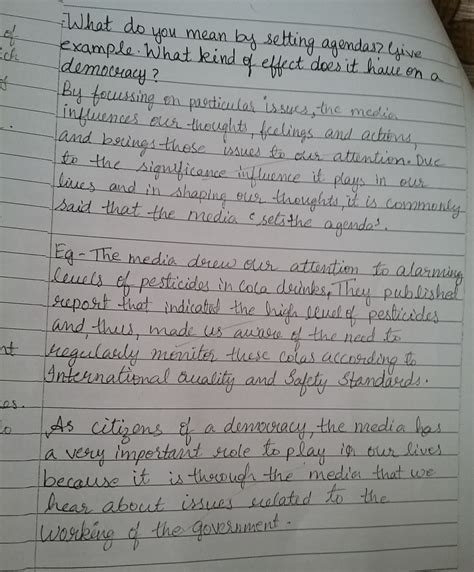 What do you mean by setting agendas? Give
of
example. What kind of effect does it have on a
democracy?
By focussing on particular issues, the media
influences our thoughts, feelings and actions,
and brings those issues to our attention. Due
to the significance influence it plays in our
lives and in shaping our thoughts, it is commonly
said that the media 'sets the agenda'.
Eg - The media drew our attention to alarming
levels of pesticides in cola drinks, They published
report that indicated the high level of pesticides
and, thus, made us aware of the need to
regularly moniter these colas according to
International Quality and Safety Standards.
As citizens of a democracy, the media has
a very important role to play in our lives
because it is through the media that we
hear about issues related to the
working of the government.